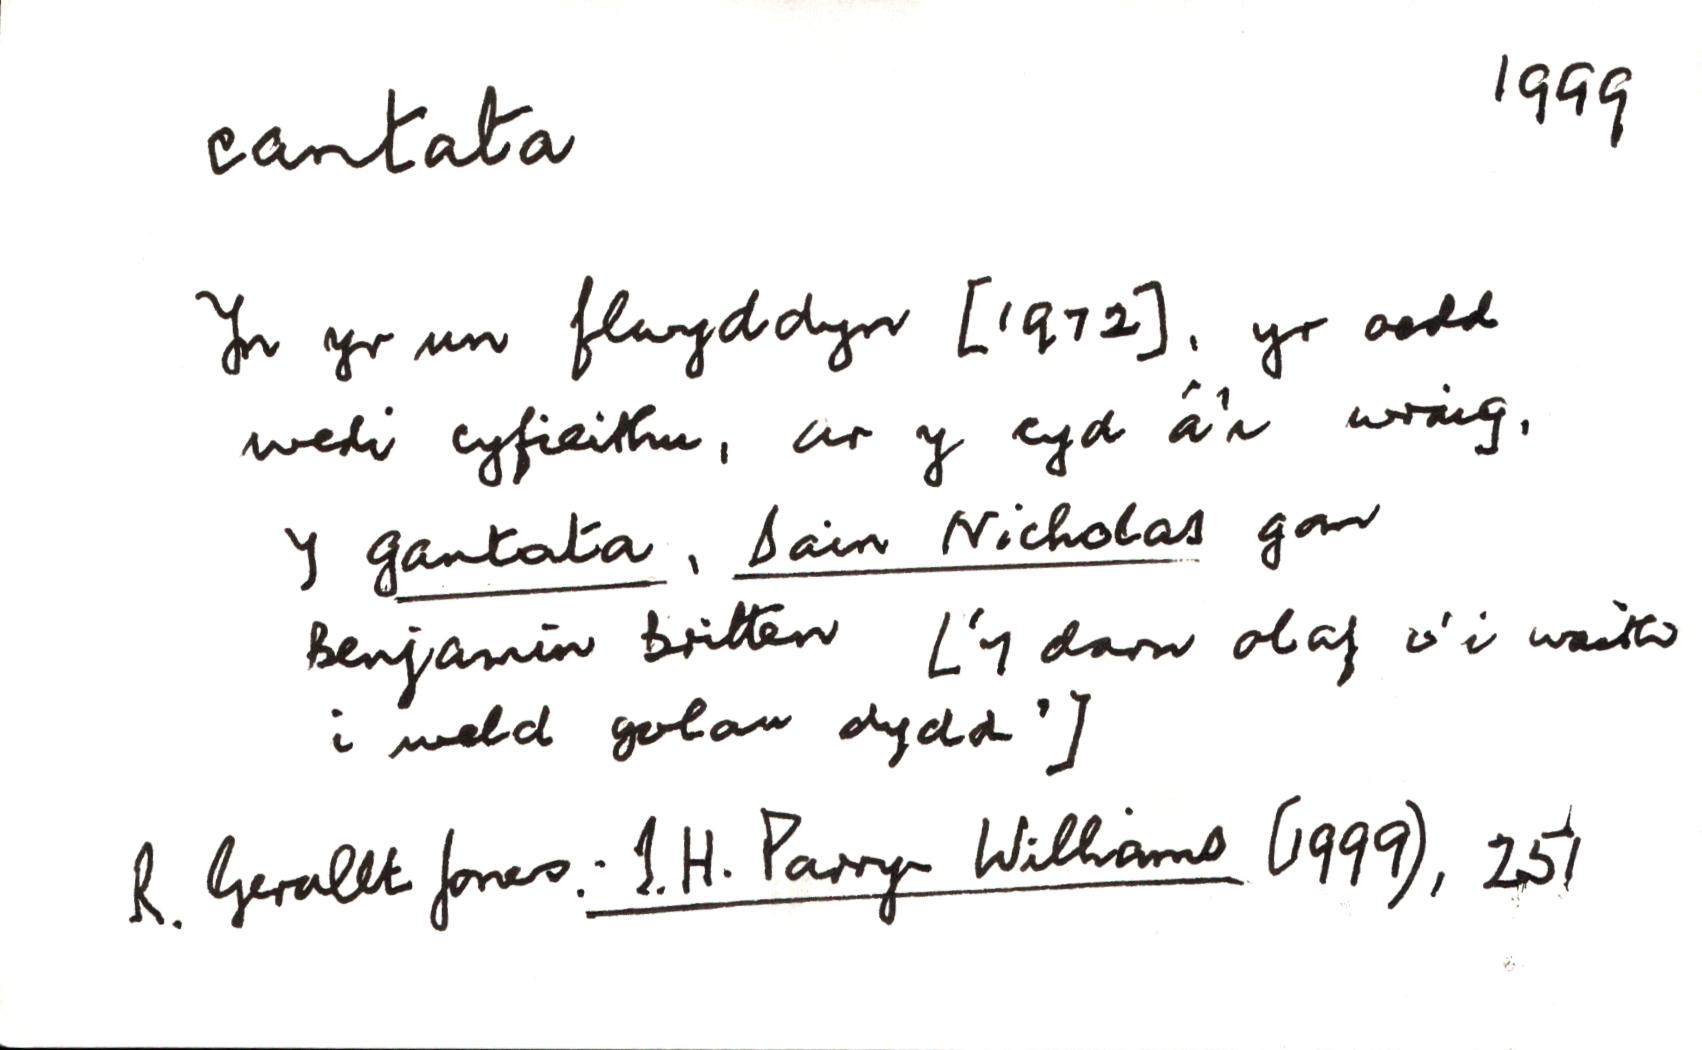 cantata 1999
Yn yr un flwyddyn [1972], yr oedd
wedi cyfieithu, ar y cyd â'i wraig,
y gantata, Sain Nicholas gan
Benjamin Britten ['y darn olaf o'i waith
i weld golau dydd']
R. Gerallt Jones: T.H. Parry-Williams (1999), 251